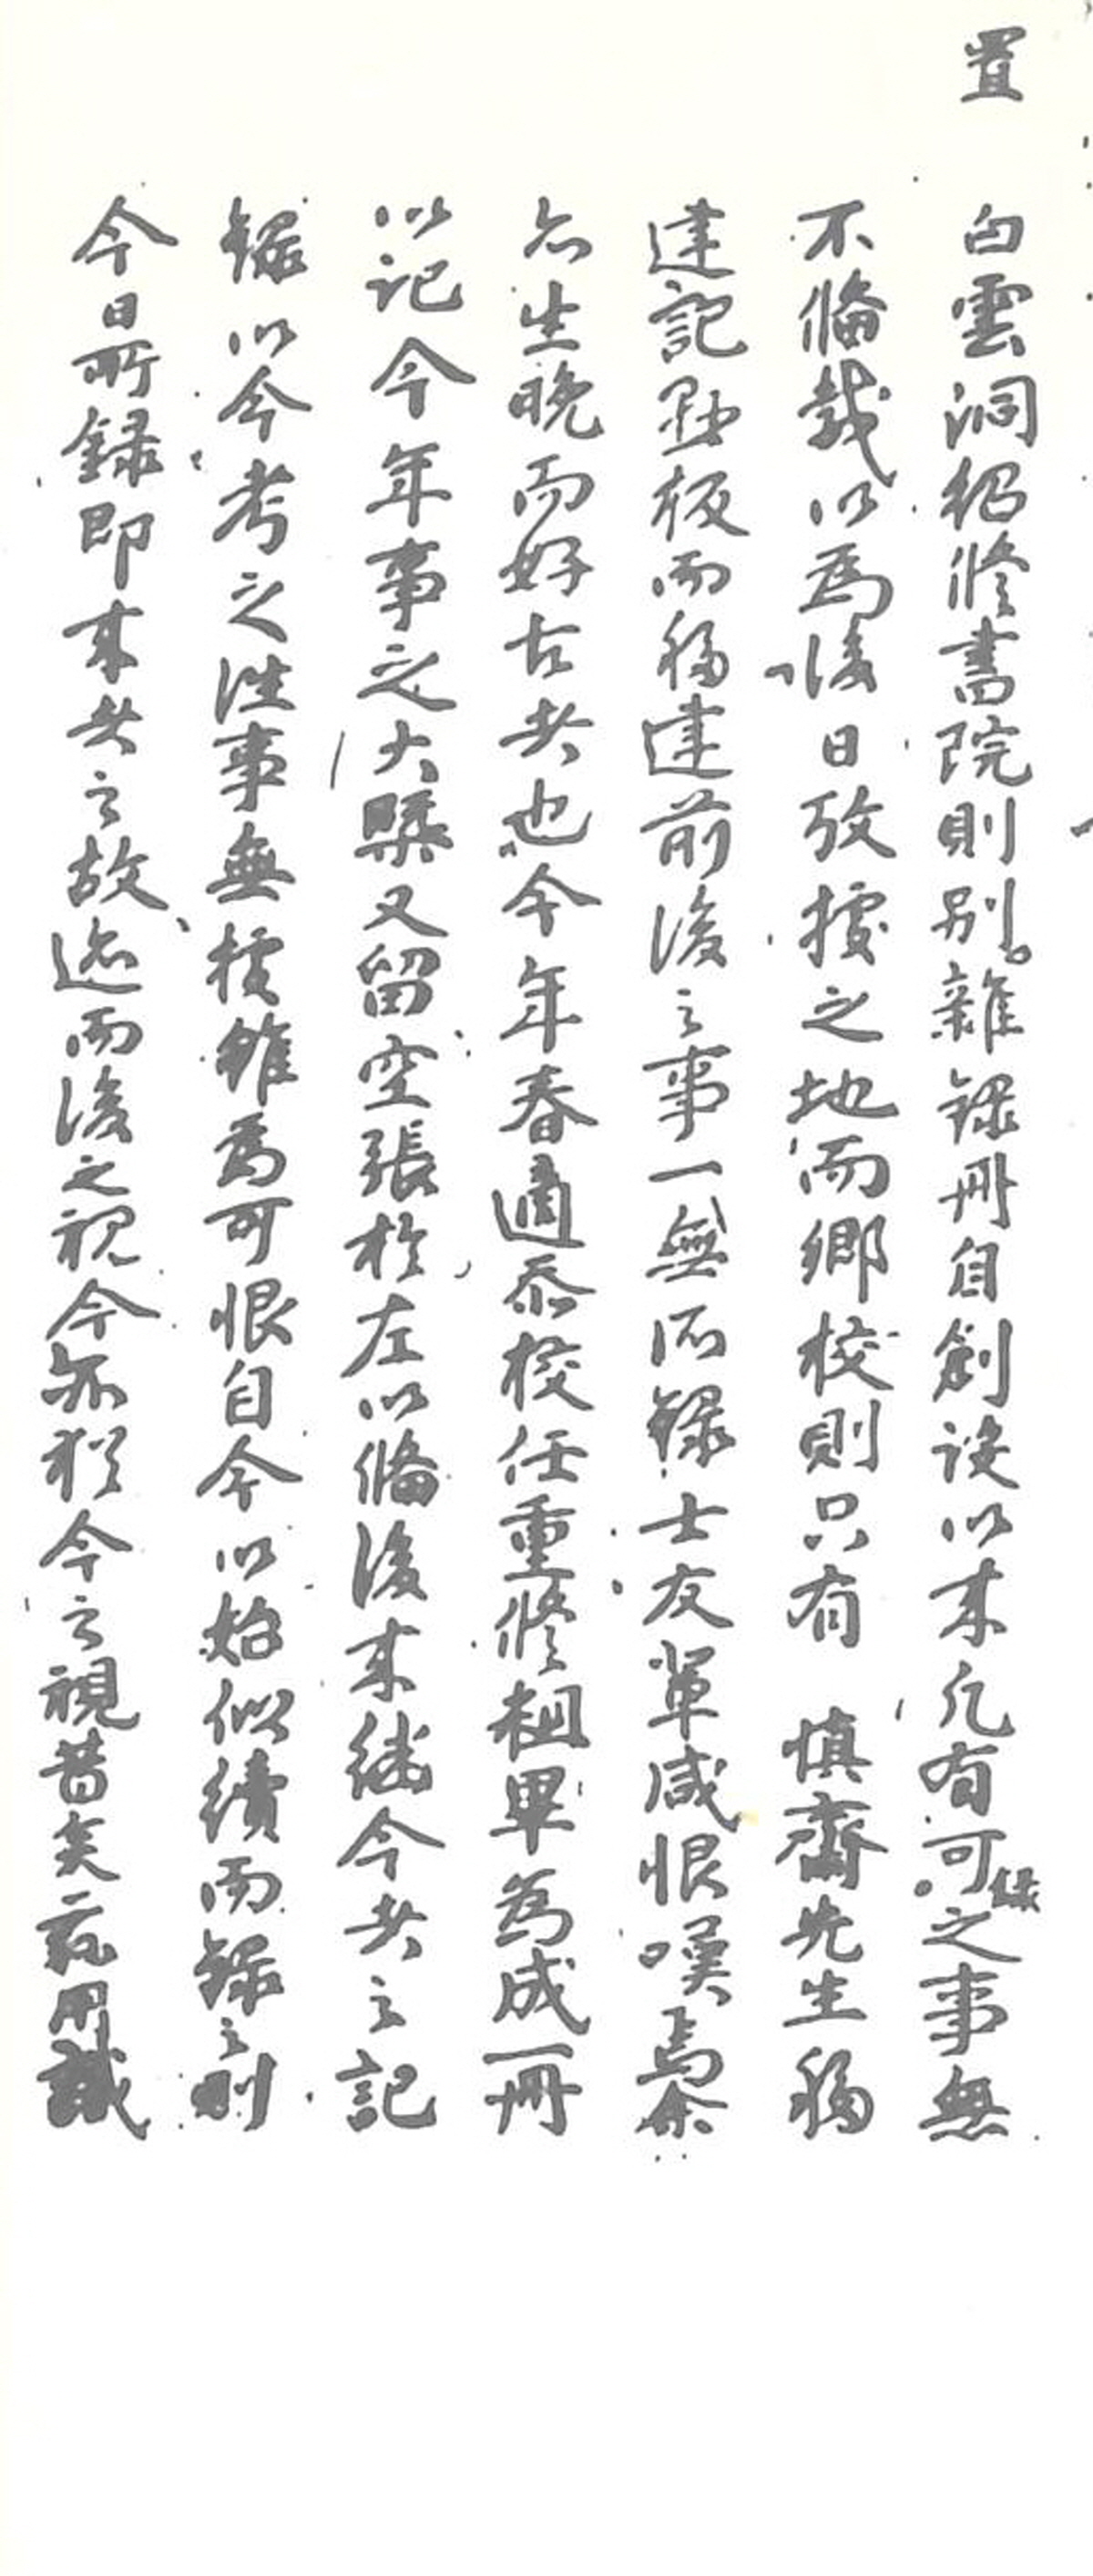 置
白雲洞紹修書院則別雜録冊自創設以来凡有可録之事無
不脩哉以爲後日攷據之地而鄉校則只有 慎齋先生移
建記懸板而移建前後之事一無所録士友輩咸恨嘆焉余
亦生晚而好古者也今年春適忝校任重修粗畢爲成一冊
以記今年事之大槩又留空張於左以俻後来継今者之記
録以今考之徃事無據雖爲可恨自今以始似續而録之則
今日所録即来者之故迹而後之視今亦猶今之視昔矣玆用識